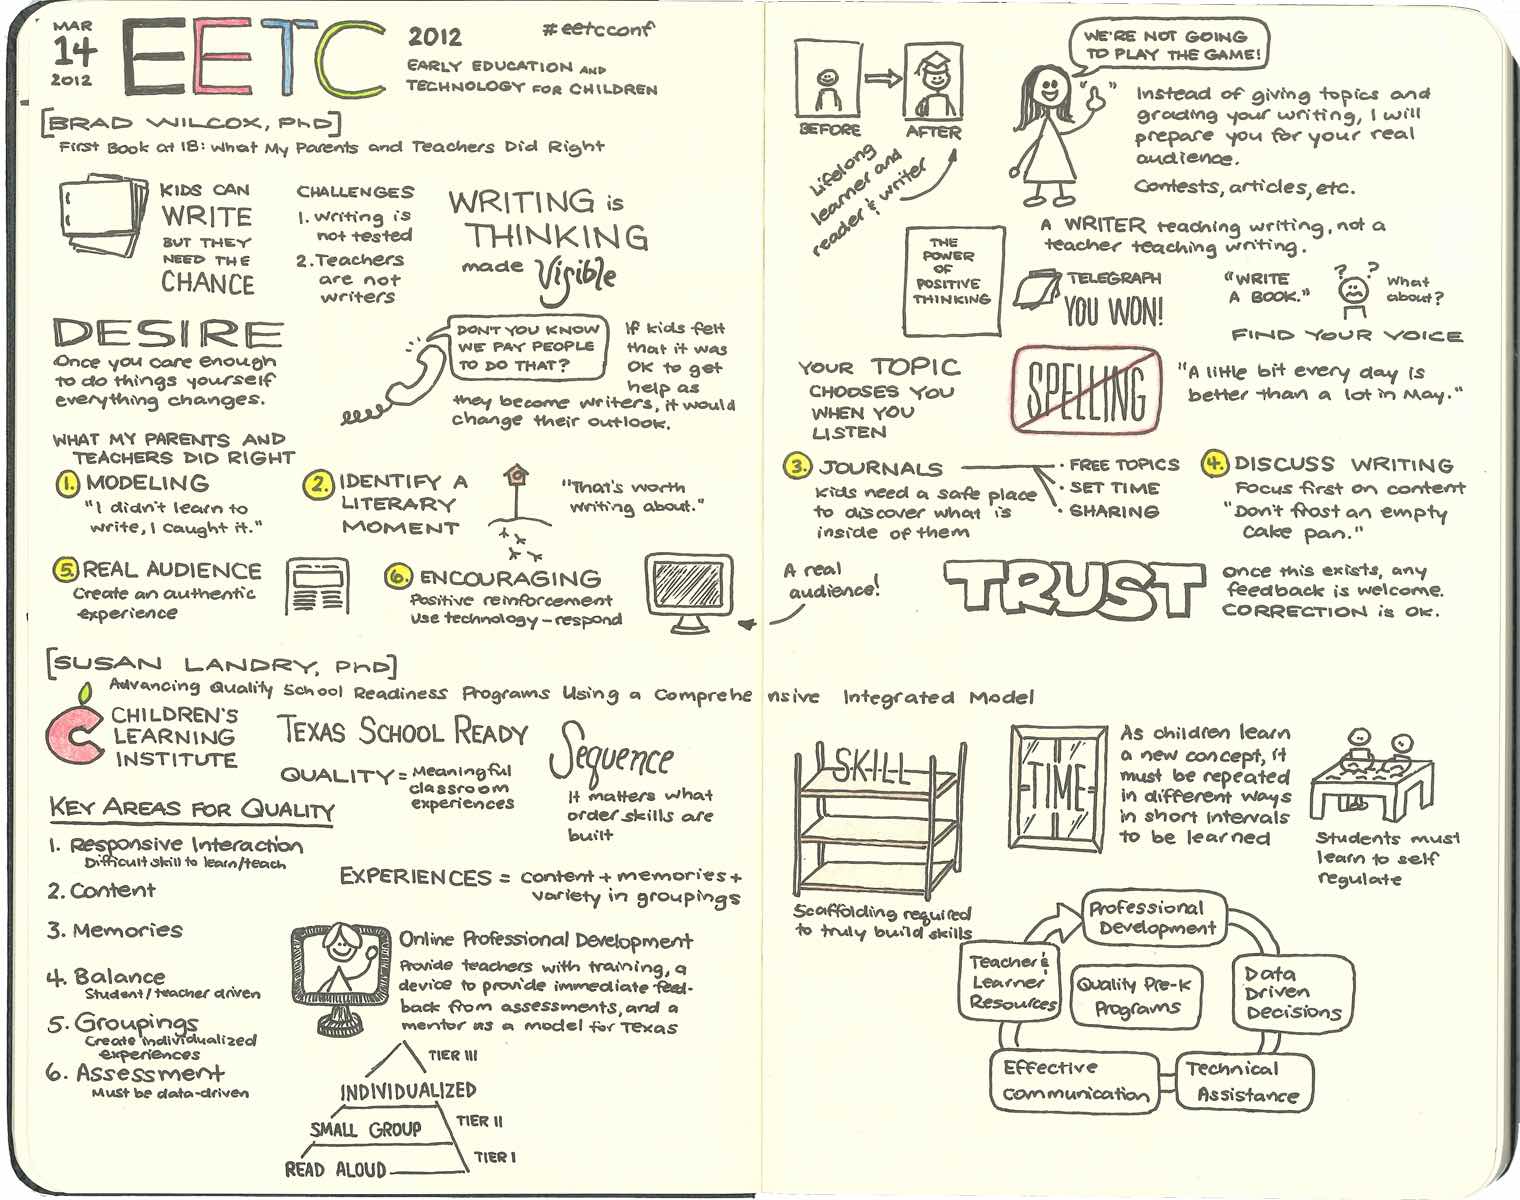 MAR
14
2012
EETC
2012
#eetcconf
EARLY EDUCATION AND
TECHNOLOGY FOR CHILDREN
[BRAD WILCOX, PhD]
First Book at 18: What My Parents and Teachers Did Right
KIDS CAN
WRITE
BUT THEY
NEED THE
CHANCE
CHALLENGES
1. Writing is
not tested
2. Teachers
are not
writers
WRITING is
THINKING
made Visible
DESIRE
Once you care enough
to do things yourself
everything changes.
DON'T YOU KNOW
WE PAY PEOPLE
TO DO THAT?
If kids felt
that it was
OK to get
help as
they become writers, it would
change their outlook.
WHAT MY PARENTS AND
TEACHERS DID RIGHT
1. MODELING
"I didn't learn to
write, I caught it."
2. IDENTIFY A
LITERARY
MOMENT
"That's worth
writing about."
5. REAL AUDIENCE
Create an authentic
experience
6. ENCOURAGING
Positive reinforcement
Use technology - respond
BEFORE
AFTER
Lifelong
learner and
reader & writer
WE'RE NOT GOING
TO PLAY THE GAME!
" "
Instead of giving topics and
grading your writing, I will
prepare you for your real
audience.
Contests, articles, etc.
A WRITER teaching writing, not a
teacher teaching writing.
THE
POWER
OF
POSITIVE
THINKING
TELEGRAPH
YOU WON!
"WRITE
A BOOK."
? ?
What
about?
FIND YOUR VOICE
YOUR TOPIC
CHOOSES YOU
WHEN YOU
LISTEN
SPELLING
"A little bit every day is
better than a lot in May."
3. JOURNALS
Kids need a safe place
to discover what is
inside of them
· FREE TOPICS
· SET TIME
· SHARING
4. DISCUSS WRITING
Focus first on content
"Don't frost an empty
cake pan."
A real
audience!
TRUST
Once this exists, any
feedback is welcome.
CORRECTION is OK.
[SUSAN LANDRY, PhD]
Advancing Quality School Readiness Programs Using a Comprehensive Integrated Model
CHILDREN'S
LEARNING
INSTITUTE
TEXAS SCHOOL READY
QUALITY = Meaningful
classroom
experiences
Sequence
It matters what
order skills are
built
KEY AREAS FOR QUALITY
1. Responsive Interaction
Difficult skill to learn/teach
2. Content
3. Memories
4. Balance
Student/teacher driven
5. Groupings
Create individualized
experiences
6. Assessment
Must be data-driven
EXPERIENCES = content + memories +
variety in groupings
Online Professional Development
Provide teachers with training, a
device to provide immediate feed-
back from assessments, and a
mentor as a model for Texas
TIER III
INDIVIDUALIZED
TIER II
SMALL GROUP
TIER I
READ ALOUD
SKILL
Scaffolding required
to truly build skills
TIME
As children learn
a new concept, it
must be repeated
in different ways
in short intervals
to be learned
Students must
learn to self
regulate
Professional
Development
Data
Driven
Decisions
Technical
Assistance
Effective
Communication
Teacher &
Learner
Resources
Quality Pre-K
Programs